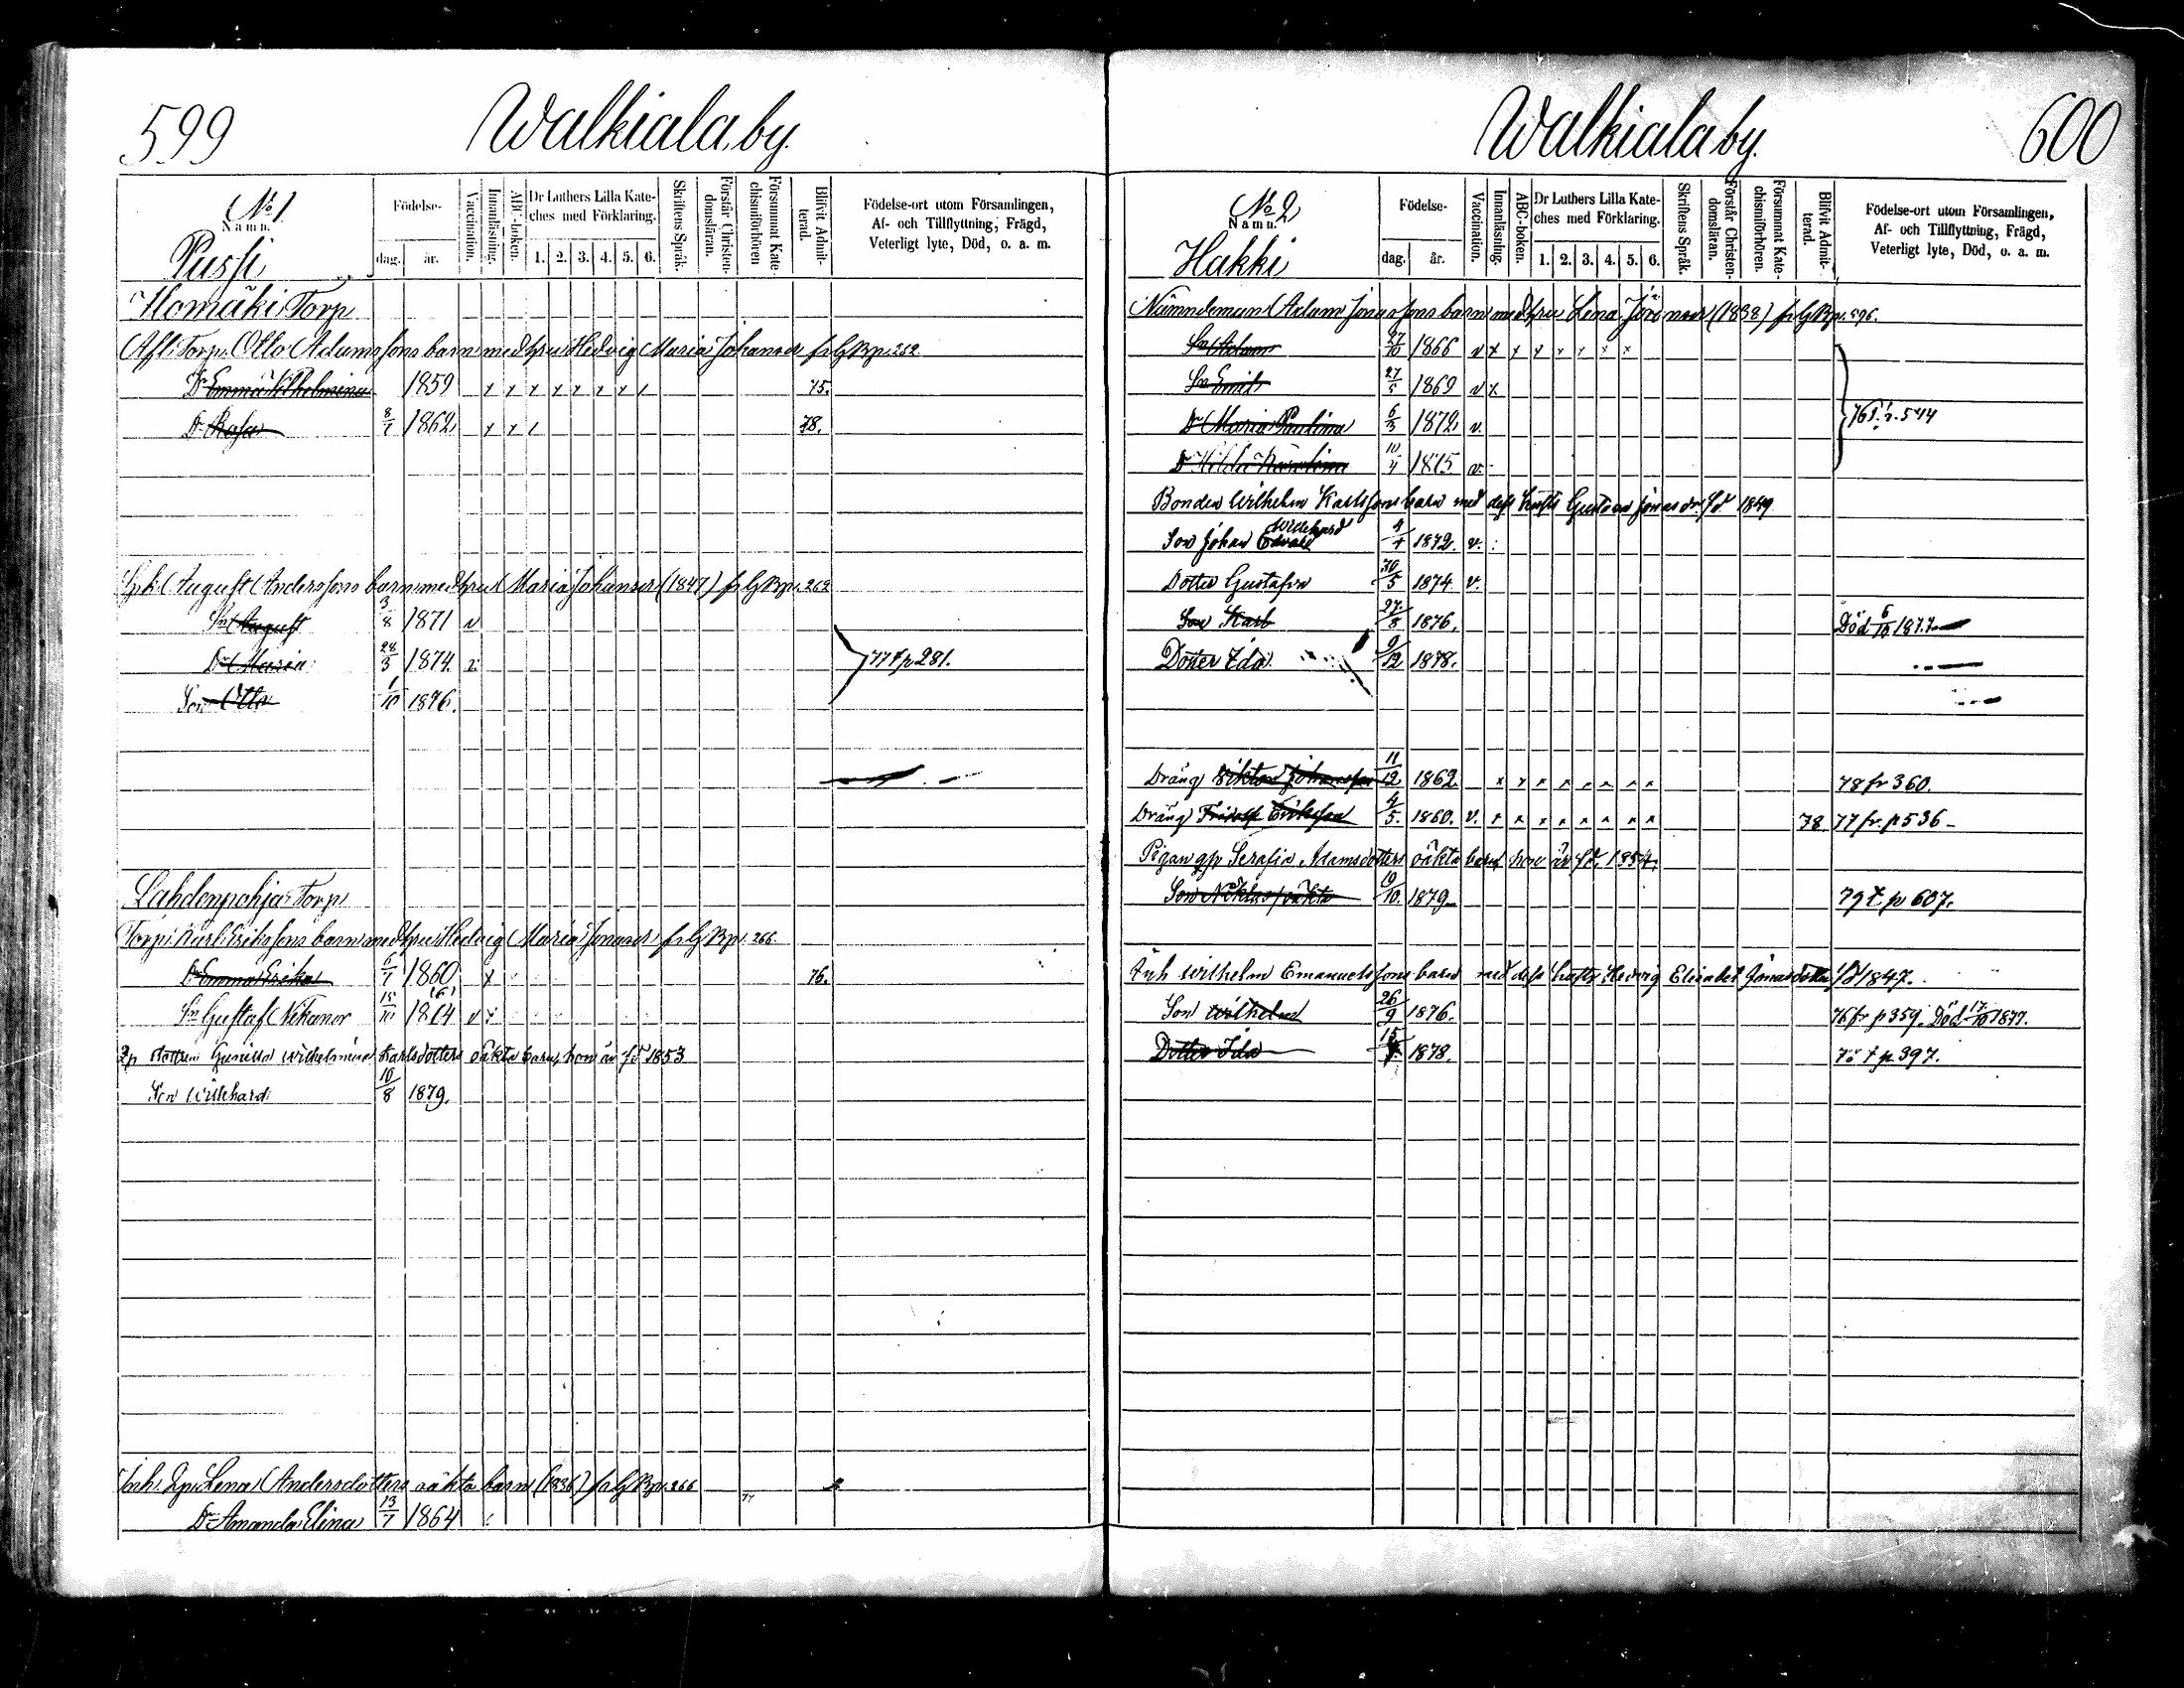 599
Walkiala by.
No 1.
Namn.
Pussi
Födelse-
dag.
år.
Vaccination.
Innanläsning.
ABC-boken.
Dr Luthers Lilla Kate-
ches med Förklaring.
1. 2. 3. 4. 5. 6.
Skriftens Språk.
Förstår Christen-
domsläran.
Försummat Kate-
chismiförhören
Blifvit Admit-
terad.
Födelse-ort utom Församlingen,
Af- och Tillflyttning, Frägd,
Veterligt lyte, Död, o. a. m.
Ilomäki Torp
Afl. Torp. Otto Adamssons barn med hru Hedvig Maria Johansdr fr G Bp. 262
Dr Emma Vilhelmina 1859 x x x x x x x x 75.
Dr Rosa 8/7 1862 x x x 78.
Sph. August Anderssons barn med hru Maria Johansdr (1847) fr G Bp. 262
Sn August 3/8 1871 v
Dr Maria 28/3 1874 v
77 t p 281.
Son Otto 1/10 1876.
Lahdenpohja Torp
Torp. Karl Erikssons barn med hru Hedvig Maria Jonasdr fr G Bp. 266.
Dr Emma Erika 6/1 1860 x 76.
Sn Gustaf Nikanor 15/10 1864 v
Qp dottren Gunilla Wilhelmina Karlsdotters oäkta barn, hon är fd 1853
Son Willehard 10/8 1879.
Inh. Qp. Lena Andersdotters oäkta barn (1836) fr G Bp. 266
Dr Amanda Elina 13/7 1864
Walkiala by.
600
No 2
Namn.
Hakki
Födelse-
dag.
år.
Vaccination.
Innanläsning.
ABC-boken.
Dr Luthers Lilla Kate-
ches med Förklaring.
1. 2. 3. 4. 5. 6.
Skriftens Språk.
Förstår Christen-
domsläran.
Försummat Kate-
chismiförhören.
Blifvit Admit-
terad.
Födelse-ort utom Församlingen,
Af- och Tillflyttning, Frägd,
Veterligt lyte, Död, o. a. m.
Nämndeman Adam Jonassons barn med hru Lena (1838) fr G Bp. 596.
Sn Adam 27/10 1866 v x x x x x x x
Sn Emil 27/5 1869 v x
Dr Maria Paulina 6/3 1872 v.
76 t. p. 544
Dr Hilda Karolina 10/4 1875 v.
Bonden Wilhelm Karlssons barn med dess hustr Gustava Jonasdr. fd 1849
Son Johan Edvard Willehard 4/4 1872. v.
Dotter Gustafva 30/5 1874 v.
Son Karl 27/8 1876. Död 6/10 1877.
Dotter Ida 9/12 1878.
Dräng Viktor Johansson 11/12 1862 x x x x x x x x 78 fr 360.
Dräng Fridolf Eriksson 4/5. 1860. v. x x x x x x x x 78 77 fr. p 536
Pigan qp Serafia Adamsdotters oäkta barn hon är fd. 1854.
Son Niklas, oäkta 19/10. 1879 79 t. p 607.
Inh Wilhelm Emanuelssons barn med dess hustr Hedvig Elisabet Jonasdotter fd 1847.
Son Wilhelm 26/9 1876. 76 fr p 359. Död 17/10 1877.
Dotter Ida 15/ 1878. 78 t p. 397.